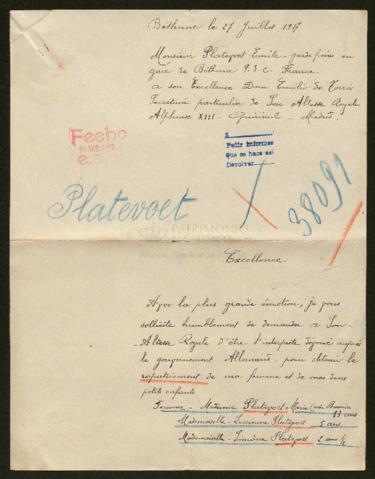 Bethune le 27 Juillet 191
Monsieur Platevoet Emile - garde frein en
gare de Béthune P.d.C. France.
a son Excellence Don Emilio de Torrès
Secrétaire particulier de Son Altesse Royale
Alphonse XIII - Madrid.
Fecho
e.a.
A
Pedir informes
Que se haga así
Devolver
Platevoet
38091
PATRIMONIO
Excellence.
Avec la plus grande émotion, je vous
sollicite humblement de demander a Son
Altesse Royale d'être l'interprète dévoué auprès
le gouvernement Allemand pour obtenir le
rapatriement de ma femme et de mes deux
petits enfants
Femme - Madame Platevoet Marie
33 ans
Mademoiselle - Lucienne Platevoet 5 ans
Mademoiselle - Simone Platevoet 2 ans ½